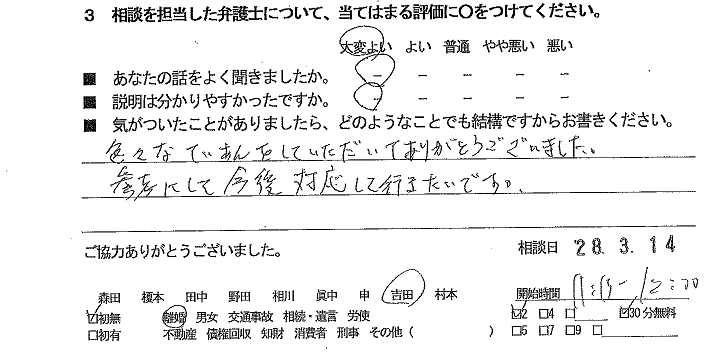 3 相談を担当した弁護士について、当てはまる評価に〇をつけてください。
大変よい よい 普通 やや悪い 悪い
■ あなたの話をよく聞きましたか。 － － － － －
■ 説明は分かりやすかったですか。 － － － － －
■ 気がついたことがありましたら、どのようなことでも結構ですからお書きください。
色々なていあんをしていただいてありがとうございました。
参考にして今後対応して行きたいです。
ご協力ありがとうございました。 相談日 '28.3.14
森田 榎本 田中 野田 相川 眞中 申 吉田 村本 開始時間
☑初無 離婚 男女 交通事故 相続・遺言 労使 ☑2 □4 □ ☑30分無料
□初有 不動産 債権回収 知財 消費者 刑事 その他 ( ) □5 □7 □9 □